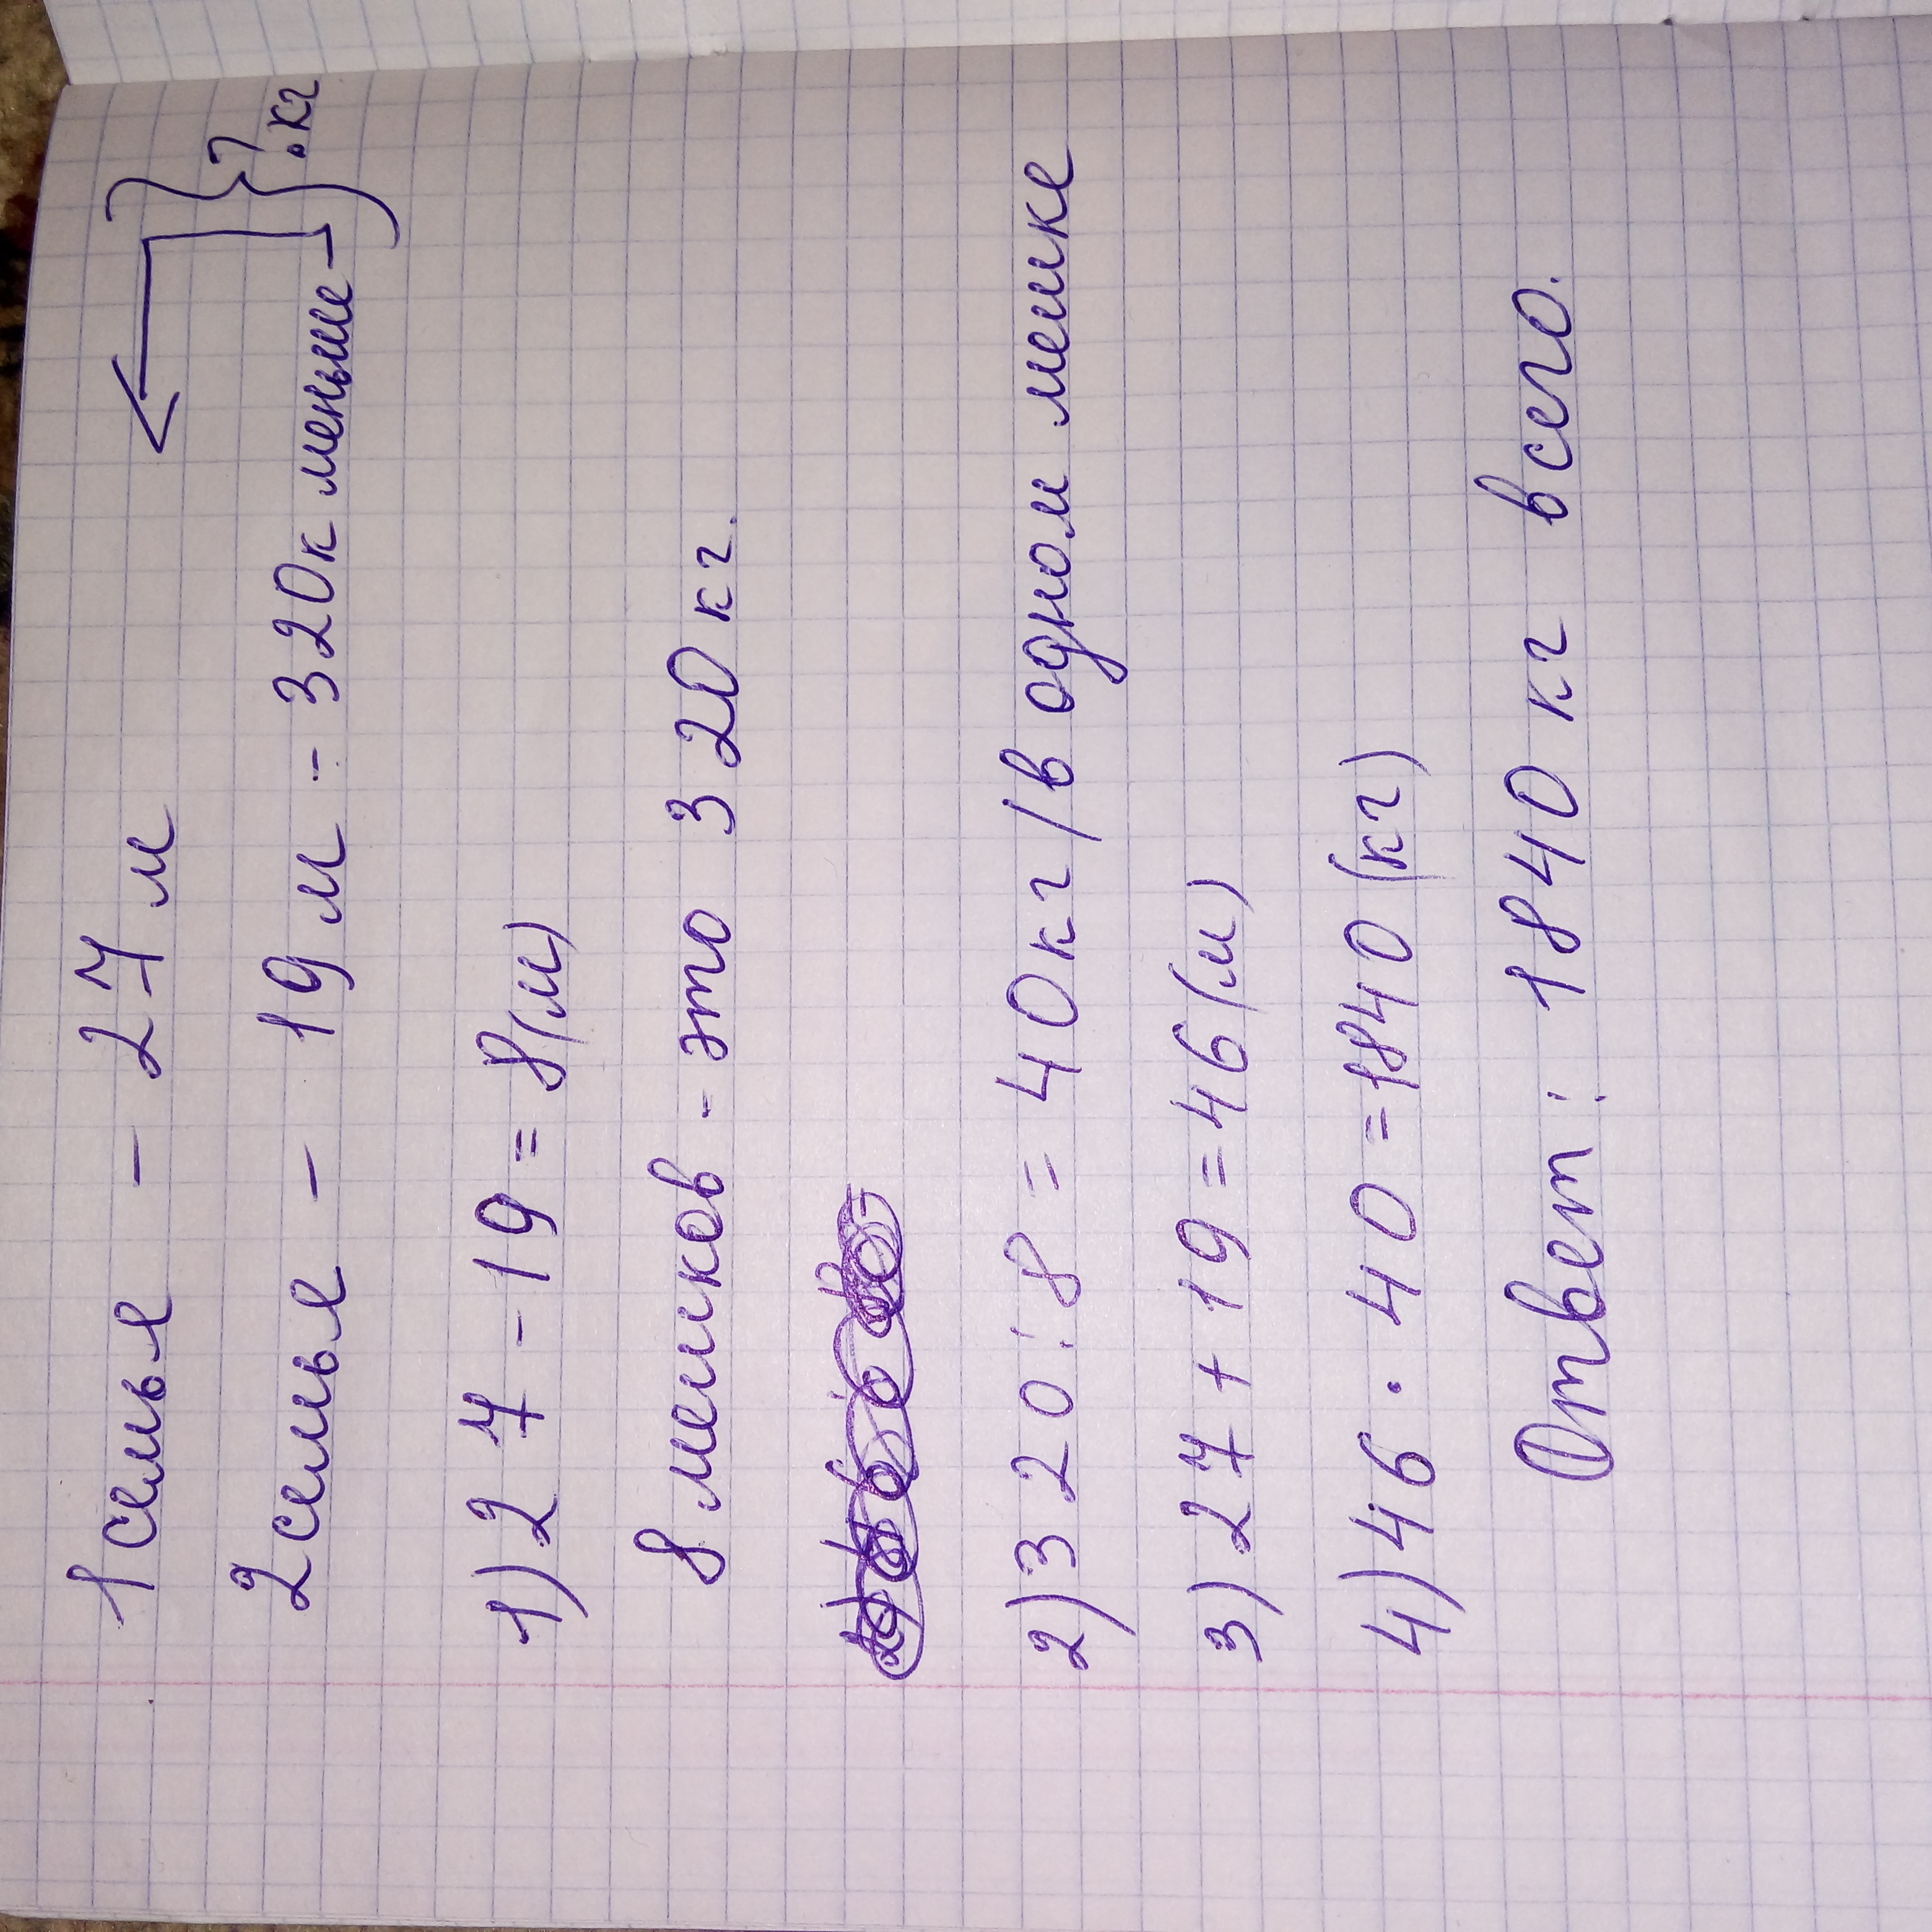 1 семья - 27 м
2 семья - 19 м - 320к меньше ? кг
1) 27 - 19 = 8(м)
8 мешков - это 320 кг.
2) 320 : 8 = 40 кг /в одном мешке
3) 27 + 19 = 46(м)
4) 46 · 40 = 1840 (кг)
Ответ: 1840 кг всего.